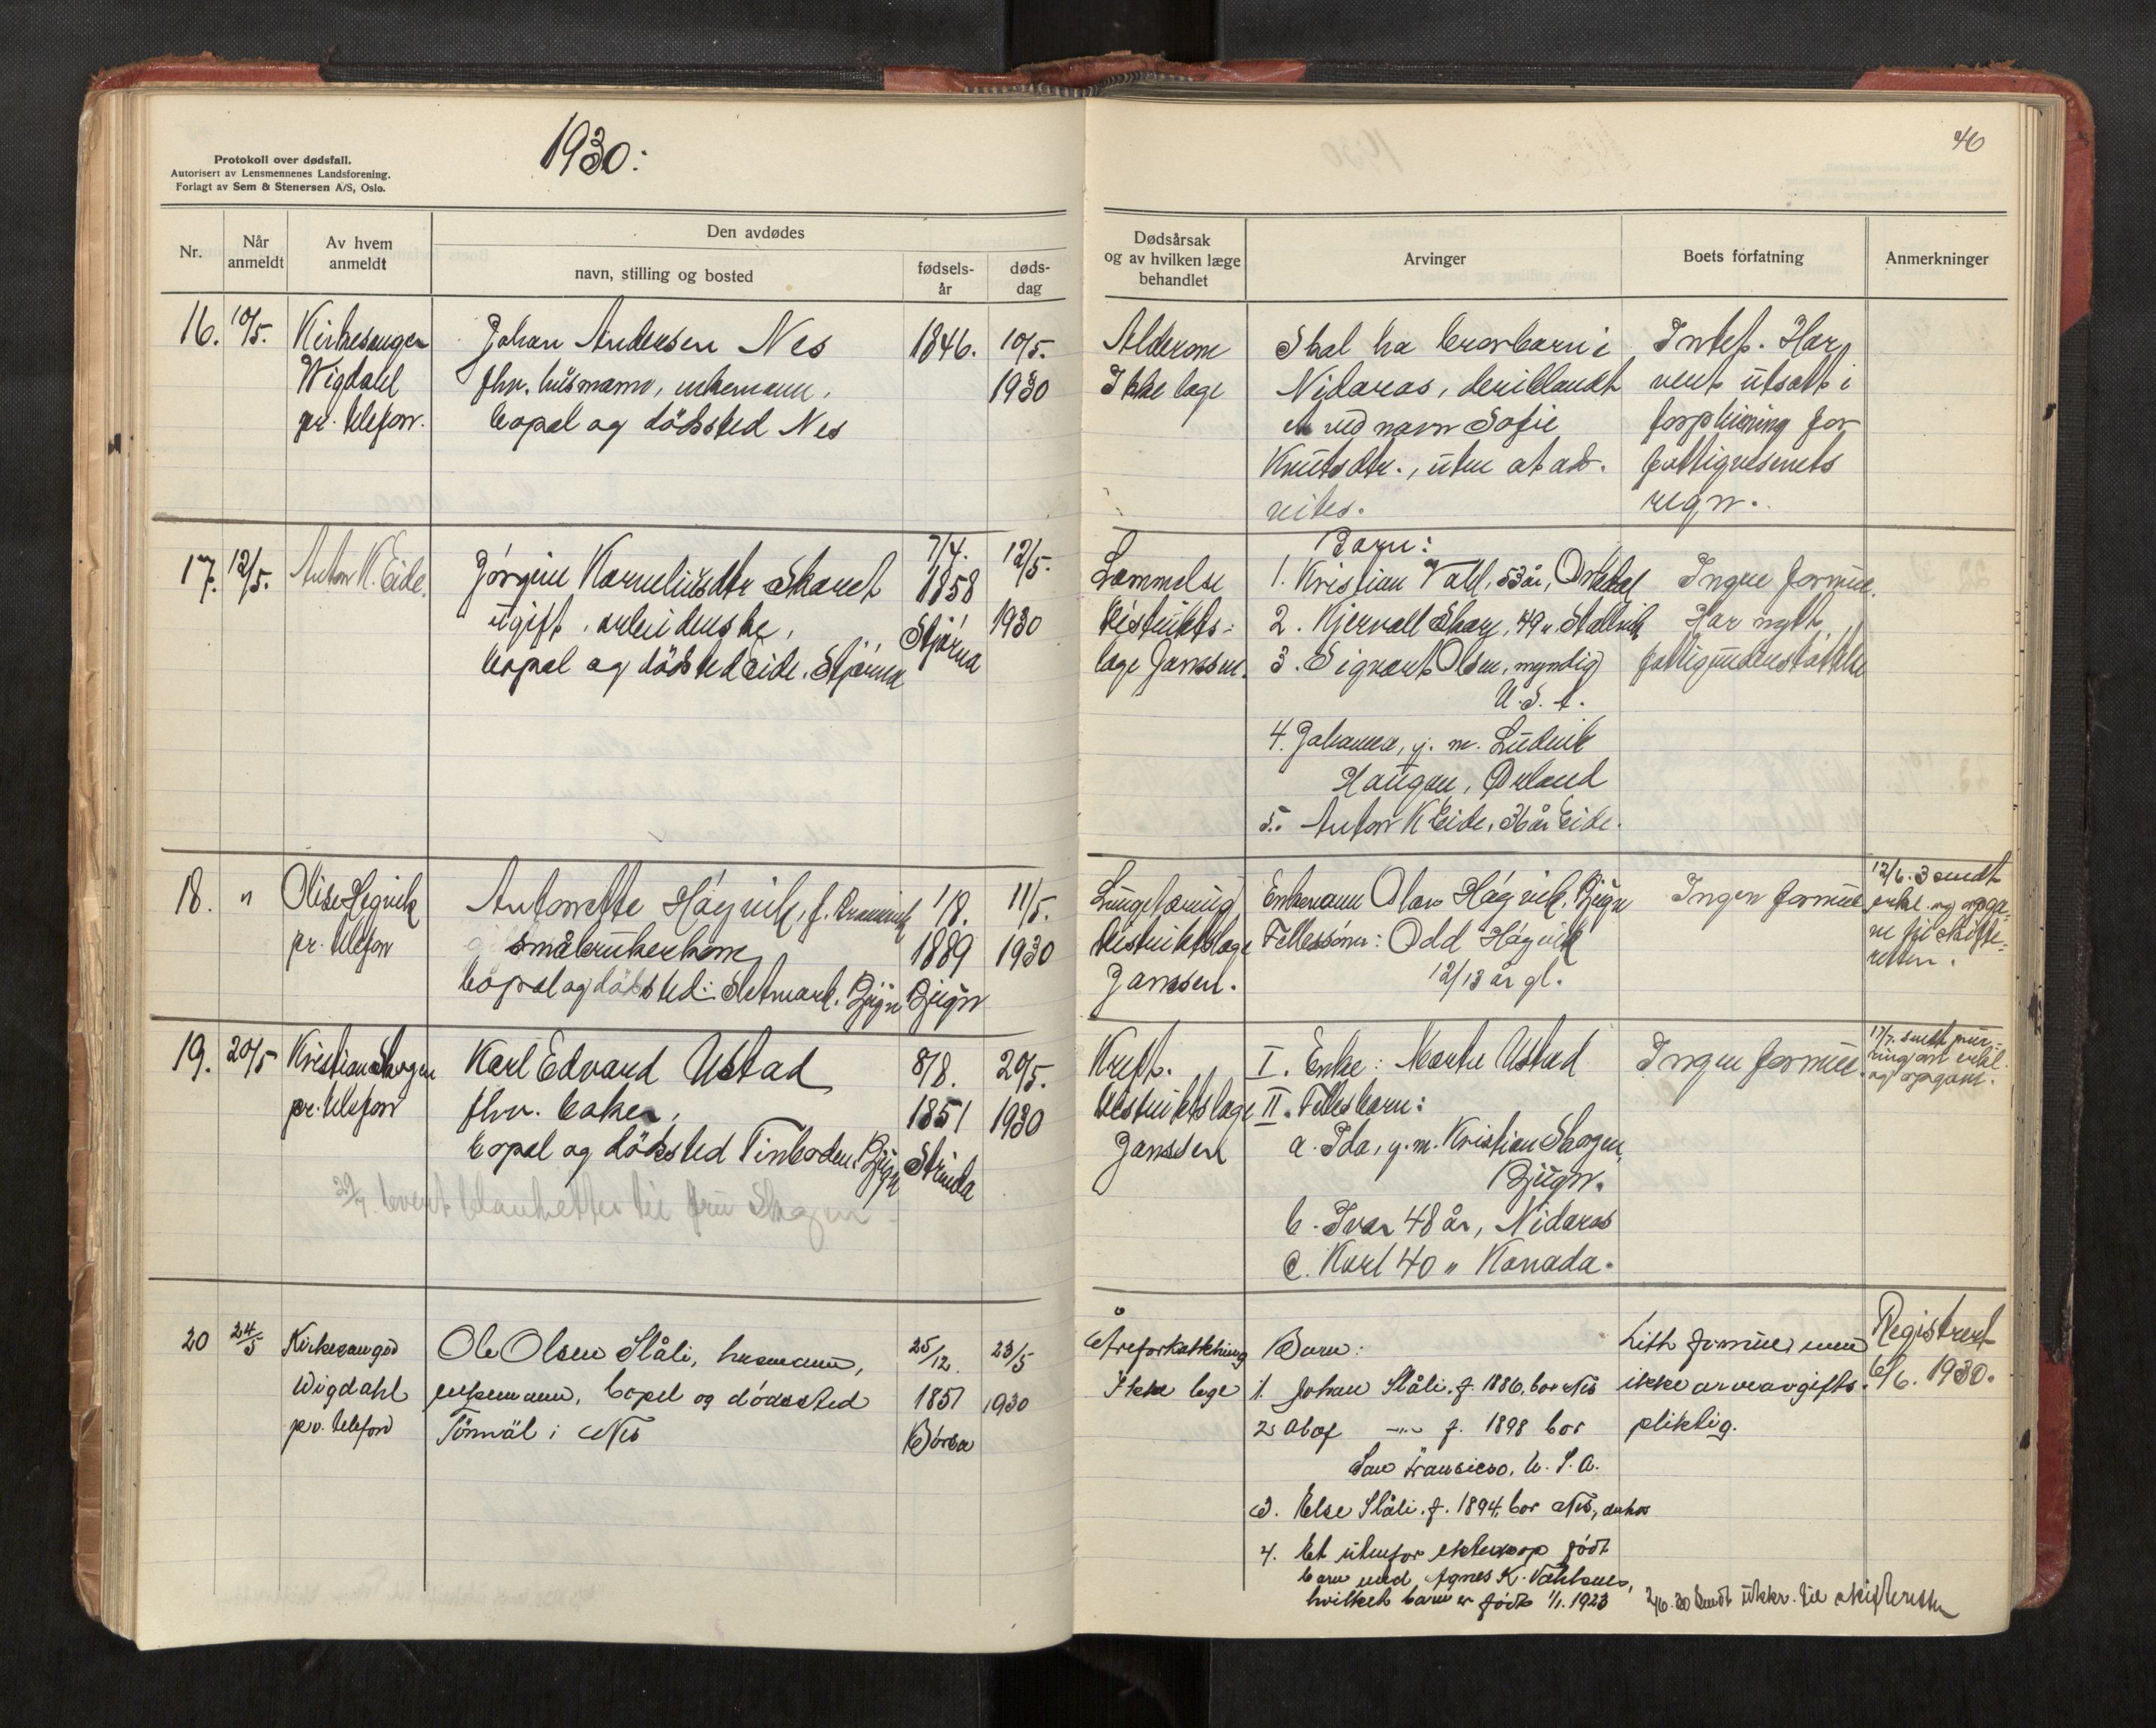 1930:
40
Protokoll over dødsfall.
Autorisert av Lensmennenes Landsforening.
Forlagt av Sem & Stenersen A/S, Oslo.
Nr.
Når
anmeldt
Av hvem
anmeldt
Den avdødes
navn, stilling og bosted
fødsels-
år
døds-
dag
Dødsårsak
og av hvilken læge
behandlet
Arvinger
Boets forfatning
Anmerkninger
16. 10/5. Kirkesanger
Wigdahl
pr. telefon.
Johan Andersen Nes
fhv. husmann, enkemann.
bopel og dödssted Nes
1846. 10/5.
1930
Alderdom
Ikke læge
Skal ha brorbarn i
Nidaros, deriblandt
en ved navn Sofie
Knutsdtr., uten at adr.
vites.
Intet. Har
vert utsatt i
forpleining for
fattigvesenets
regn.
17. 12/5. Anton K. Eide.
Jörgine Korneliusdtr Skaret
ugift, arbeiderske,
bopel og dödssted Eide, Stjörna
7/4.
1858
Stjörna
12/5.
1930
Lammelse
distrikts-
læge Janssen.
Barn:
1. Kristian Vall, 53 år, Orkdal
2. Kjervall Skary, 49 "
3. Signart Olsen, myndig
U.S.A.
4. Johanna, g. m. Ludvik
Haugen, Ørland
5. Anton K Eide, 36 år Eide.
Ingen formue.
Har nytt
fattigunderstöttelse
18. " Olise Høgvik
pr. telefon
Antonette Högvik, f.
småbrukerkone
bopel og dödssted: Sletmark, Bjugn
1/8.
1889
Bjugn
11/5.
1930
Lungebetennelse
distriktslæge
Janssen.
Enkemann Olav Högvik, Bjugn
Fellessönn: Odd Högvik
12/13 år gl.
Ingen formue
12/6. 3 sendt
erkl. og opga-
ve fr skifte-
retten.
19. 20/5 Kristian Skogen
pr. telefon
Karl Edvard Ustad
fhv. baker,
bopel og dödssted Tinboden, Bjugn
8/8.
1851
Strinda
20/5.
1930
Kreft.
distriktslæge
Janssen
I. Enke: Marta Ustad
II. Fellesbarn:
a. Ida, g. m. Kristian Skogen,
Bjugn.
b. Ivar 48 år, Nidaros
c. Karl 40 " Kanada.
Ingen formue.
17/7. sendt pur-
ring ant erkl.
og opgave.
29/7. levert blanketter til fru Skogen
20 24/5 Kirkesanger
Wigdahl
pr. telefon
Ole Olsen Slåli, husmann,
enkemann, bopel og dödssted
i Nes
25/12.
1851
Börsa
23/5
1930
Åreforkalkning
Ikke læge
Barn:
1. Johan Slåli. f. 1886. bor Nes
2. Olaf -"- f. 1898 bor
San Fransisco, U. S. A.
3. Else Slåli. f. 1894, bor Nes,
4. Et utenfor ekteskap födt
barn med Agnes K.
hvilket barn er födt 1/1. 1923
Litt formue, men
ikke arveavgifts-
pliktig.
Registrert
6/6. 1930.
2/6. 30 Sendt utskr. til skifteretten